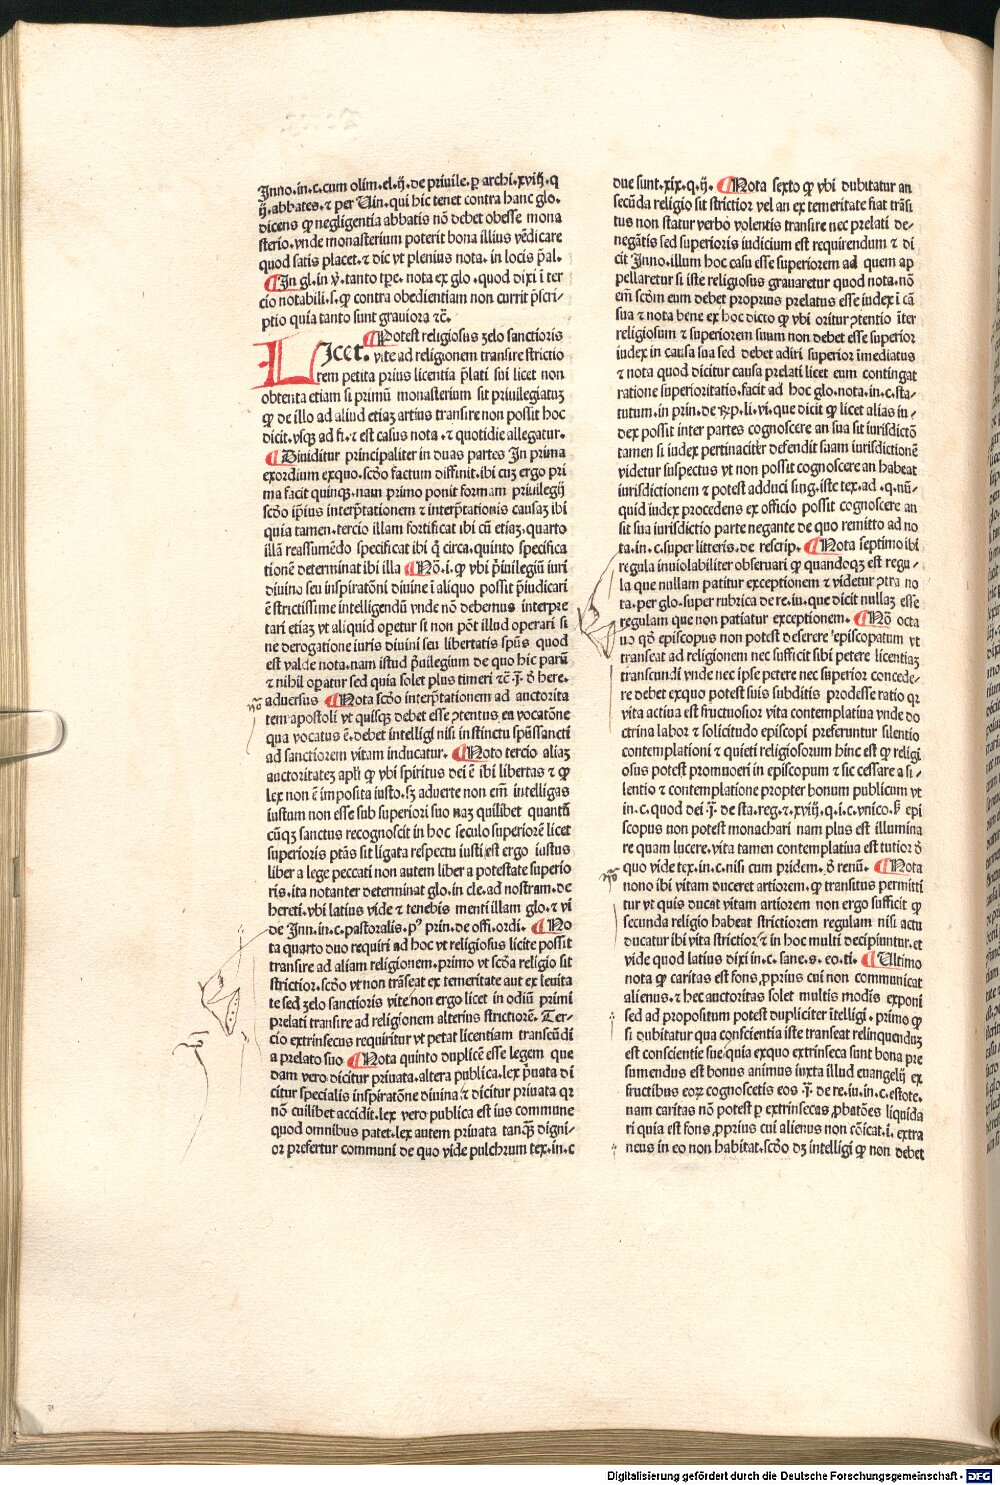 Inno.in.c.cum olim.el.ij.de priuile.ꝑ archi.xviij.q
ij.abbates.⁊ per Uin.qui hic tenet contra hanc glo.
dicens ꝙ negligentia abbatis nō debet obesse mona
sterio.vnde monasterium poterit bona illius vēdicare
quod satis placet.⁊ dic vt plenius nota. in locis p̄al.
¶In gl.in ꝟ.tanto tꝑe. nota ex glo.quod dixi ī ter
cio notabili.s.ꝙ contra obedientiam non currit p̄scri-
ptio quia tanto sunt grauiora ⁊c̄.
¶Potest religiosus zelo sanctioris
LIcet. vite ad religionem transire strictio
rem petita prius licentia p̄lati sui licet non
obtenta etiam si primū monasterium sit priuilegiatuꝫ
ꝙ de illo ad aliud etiaꝫ artius transire non possit hoc
dicit.vsqꝫ ad fi.⁊ est casus nota.⁊ quotidie allegatur.
¶Diuiditur principaliter in duas partes In prima
exordium exquo.scd̄o factum diffinit.ibi cuꝫ ergo pri
ma facit quinqꝫ.nam primo ponit formam priuilegij
scd̄o ip̄ius interp̄tationem ⁊ interp̄tationis causaꝫ ibi
quia tamen.tercio illam fortificat ibi cū etiaꝫ.quarto
illā reassumēdo specificat ibi q̄ circa.quinto specifica
tionē determinat ibi illa ¶Nō.i.ꝙ vbi p̄uilegiū iuri
diuino seu inspiratōni diuine ī aliquo possit p̄iudicari
ē strictissime intelligendū vnde nō debemus interpre
tari etiaꝫ vt aliquid oꝑetur si non pōt illud operari si
ne derogatione iuris diuini seu libertatis sp̄us quod
est valde nota.nam istud p̄uilegium de quo hic parū
⁊ nihil oꝑatur sed quia solet plus timeri ⁊c̄ .j. ꝺ here.
aduersus ¶Nota scd̄o interp̄tationem ad auctorita
tem apostoli vt quisqꝫ debet esse ↄtentus ea vocatōne
qua vocatus ē.debet intelligi nisi instinctu sp̄ussancti
ad sanctiorem vitam inducatur. ¶Noto tercio aliaꝫ
auctoritateꝫ apl̄i ꝙ vbi spiritus dei ē ibi libertas ⁊ ꝙ
lex non ē imposita iusto.sꝫ aduerte non em̄ intelligas
iustum non esse sub superiori suo naꝫ quilibet quantū
cūqꝫ sanctus recognoscit in hoc seculo superiorē licet
superioris ptās sit ligata respectu iusti est ergo iustus
liber a lege peccati non autem liber a potestate superio
ris.ita notanter determinat glo.in cle.ad nostram.de
hereti.vbi latius vide ⁊ tenebis menti illam glo.⁊ vi
de Inn.in.c.pastoralis.pᵒ prin.de offi.ordi. ¶No
ta quarto duo requiri ad hoc vt religiosus licite possit
transire ad aliam religionem.primo vt scd̄a religio sit
strictior.scd̄o vt non trāseat ex temeritate aut ex leuita
te sed zelo sanctioris vite.non ergo licet in odiū primi
prelati transire ad religionem alterius strictiorē. Ter-
cio extrinsecus requiritur vt petat licentiam transeūdi
a prelato suo ¶Nota quinto duplicē esse legem que
dam vero dicitur priuata.altera publica.lex p̄uata di
citur specialis inspiratōne diuina ⁊ dicitur priuata qꝛ
nō cuilibet accidit.lex vero publica est ius commune
quod omnibus patet.lex autem priuata tanqꝫ digni-
or prefertur communi de quo vide pulchrum tex.in.c
due sunt.xix.q.ij. ¶Nota sexto ꝙ vbi dubitatur an
secūda religio sit strictior vel an ex temeritate fiat trāsi
tus non statur verbo volentis transire nec prelati de-
negātis sed superioris iudicium est requirendum ⁊ di
cit Inno.illum hoc casu esse superiorem ad quem ap
pellaretur si iste religiosus grauaretur quod nota.nō
em̄ scd̄m eum debet proprius prelatus esse iudex ī cā
sua ⁊ nota bene ex hoc dicto ꝙ vbi oritur ↄtentio īter
religiosum ⁊ superiorem suum non debet esse superior
iudex in causa sua sed debet adiri superior īmediatus
⁊ nota quod dicitur causa prelati licet eum contingat
ratione superioritatis.facit ad hoc glo.nota.in.c.sta-
tutum.in prin.de rescrip.li.vi.que dicit ꝙ licet alias iu-
dex possit inter partes cognoscere an sua sit iurisdictō
tamen si iudex pertinaciter defendit suam iurisdictionē
videtur suspectus vt non possit cognoscere an habeat
iurisdictionem ⁊ potest adduci sing.iste tex.ad.q.nū-
quid iudex procedens ex officio possit cognoscere an
sit sua iurisdictio parte negante de quo remitto ad no
ta.in.c.super litteris.de rescrip. ¶Nota septimo ibi
regula inuiolabiliter obseruari ꝙ quandoqꝫ est regu-
la que nullam patitur exceptionem ⁊ videtur ↄtra no
ta.per glo.super rubrica de re.iu.que dicit nullaꝫ esse
regulam que non patiatur exceptionem. ¶Nō octa
uo qd̄ episcopus non potest deserere episcopatum vt
transeat ad religionem nec sufficit sibi petere licentiaꝫ
transeundi vnde nec ipse petere nec superior concede-
re debet exquo potest suis subditis prodesse ratio qꝛ
vita actiua est fructuosior vita contemplatiua vnde do
ctrina labor ⁊ solicitudo episcopi preferuntur silentio
contemplationi ⁊ quieti religiosorum hinc est ꝙ religi
osus potest promoueri in episcopum ⁊ sic cessare a si-
lentio ⁊ contemplatione propter bonum publicum vt
in.c.quod dei .j. de sta.reg.⁊.xviij.q.i.c.vnico.sꝫ epi
scopus non potest monachari nam plus est illumina
re quam lucere.vita tamen contemplatiua est tutior ꝺ
quo vide tex.in.c.nisi cum pridem. ꝺ renū. ¶Nota
nono ibi vitam duceret artiorem.ꝙ transitus permitti
tur vt quis ducat vitam artiorem non ergo sufficit ꝙ
secunda religio habeat strictiorem regulam nisi actu
ducatur ibi vita strictior ⁊ in hoc multi decipiuntur.et
vide quod latius dixi in.c.sane.s.eo.ti. ¶Ultimo
nota ꝙ caritas est fons ꝓprius cui non communicat
alienus.⁊ hec auctoritas solet multis modis exponi
sed ad propositum potest dupliciter ītelligi.primo ꝙ
si dubitatur qua conscientia iste transeat relinquenduꝫ
est conscientie sue quia exquo extrinseca sunt bona pre
sumendus est bonus animus iuxta illud euangelij ex
fructibus eoꝝ cognoscetis eos .j. de re.iu.in.c.estote.
nam caritas nō potest ꝑ extrinsecas ꝓbatōes liquida
ri quia est fons ꝓprius cui alienus non cōicat.i.extra
neus in eo non habitat.scd̄o dꝫ intelligi ꝙ non debet
Digitalisierung gefördert durch die Deutsche Forschungsgemeinschaft - DFG